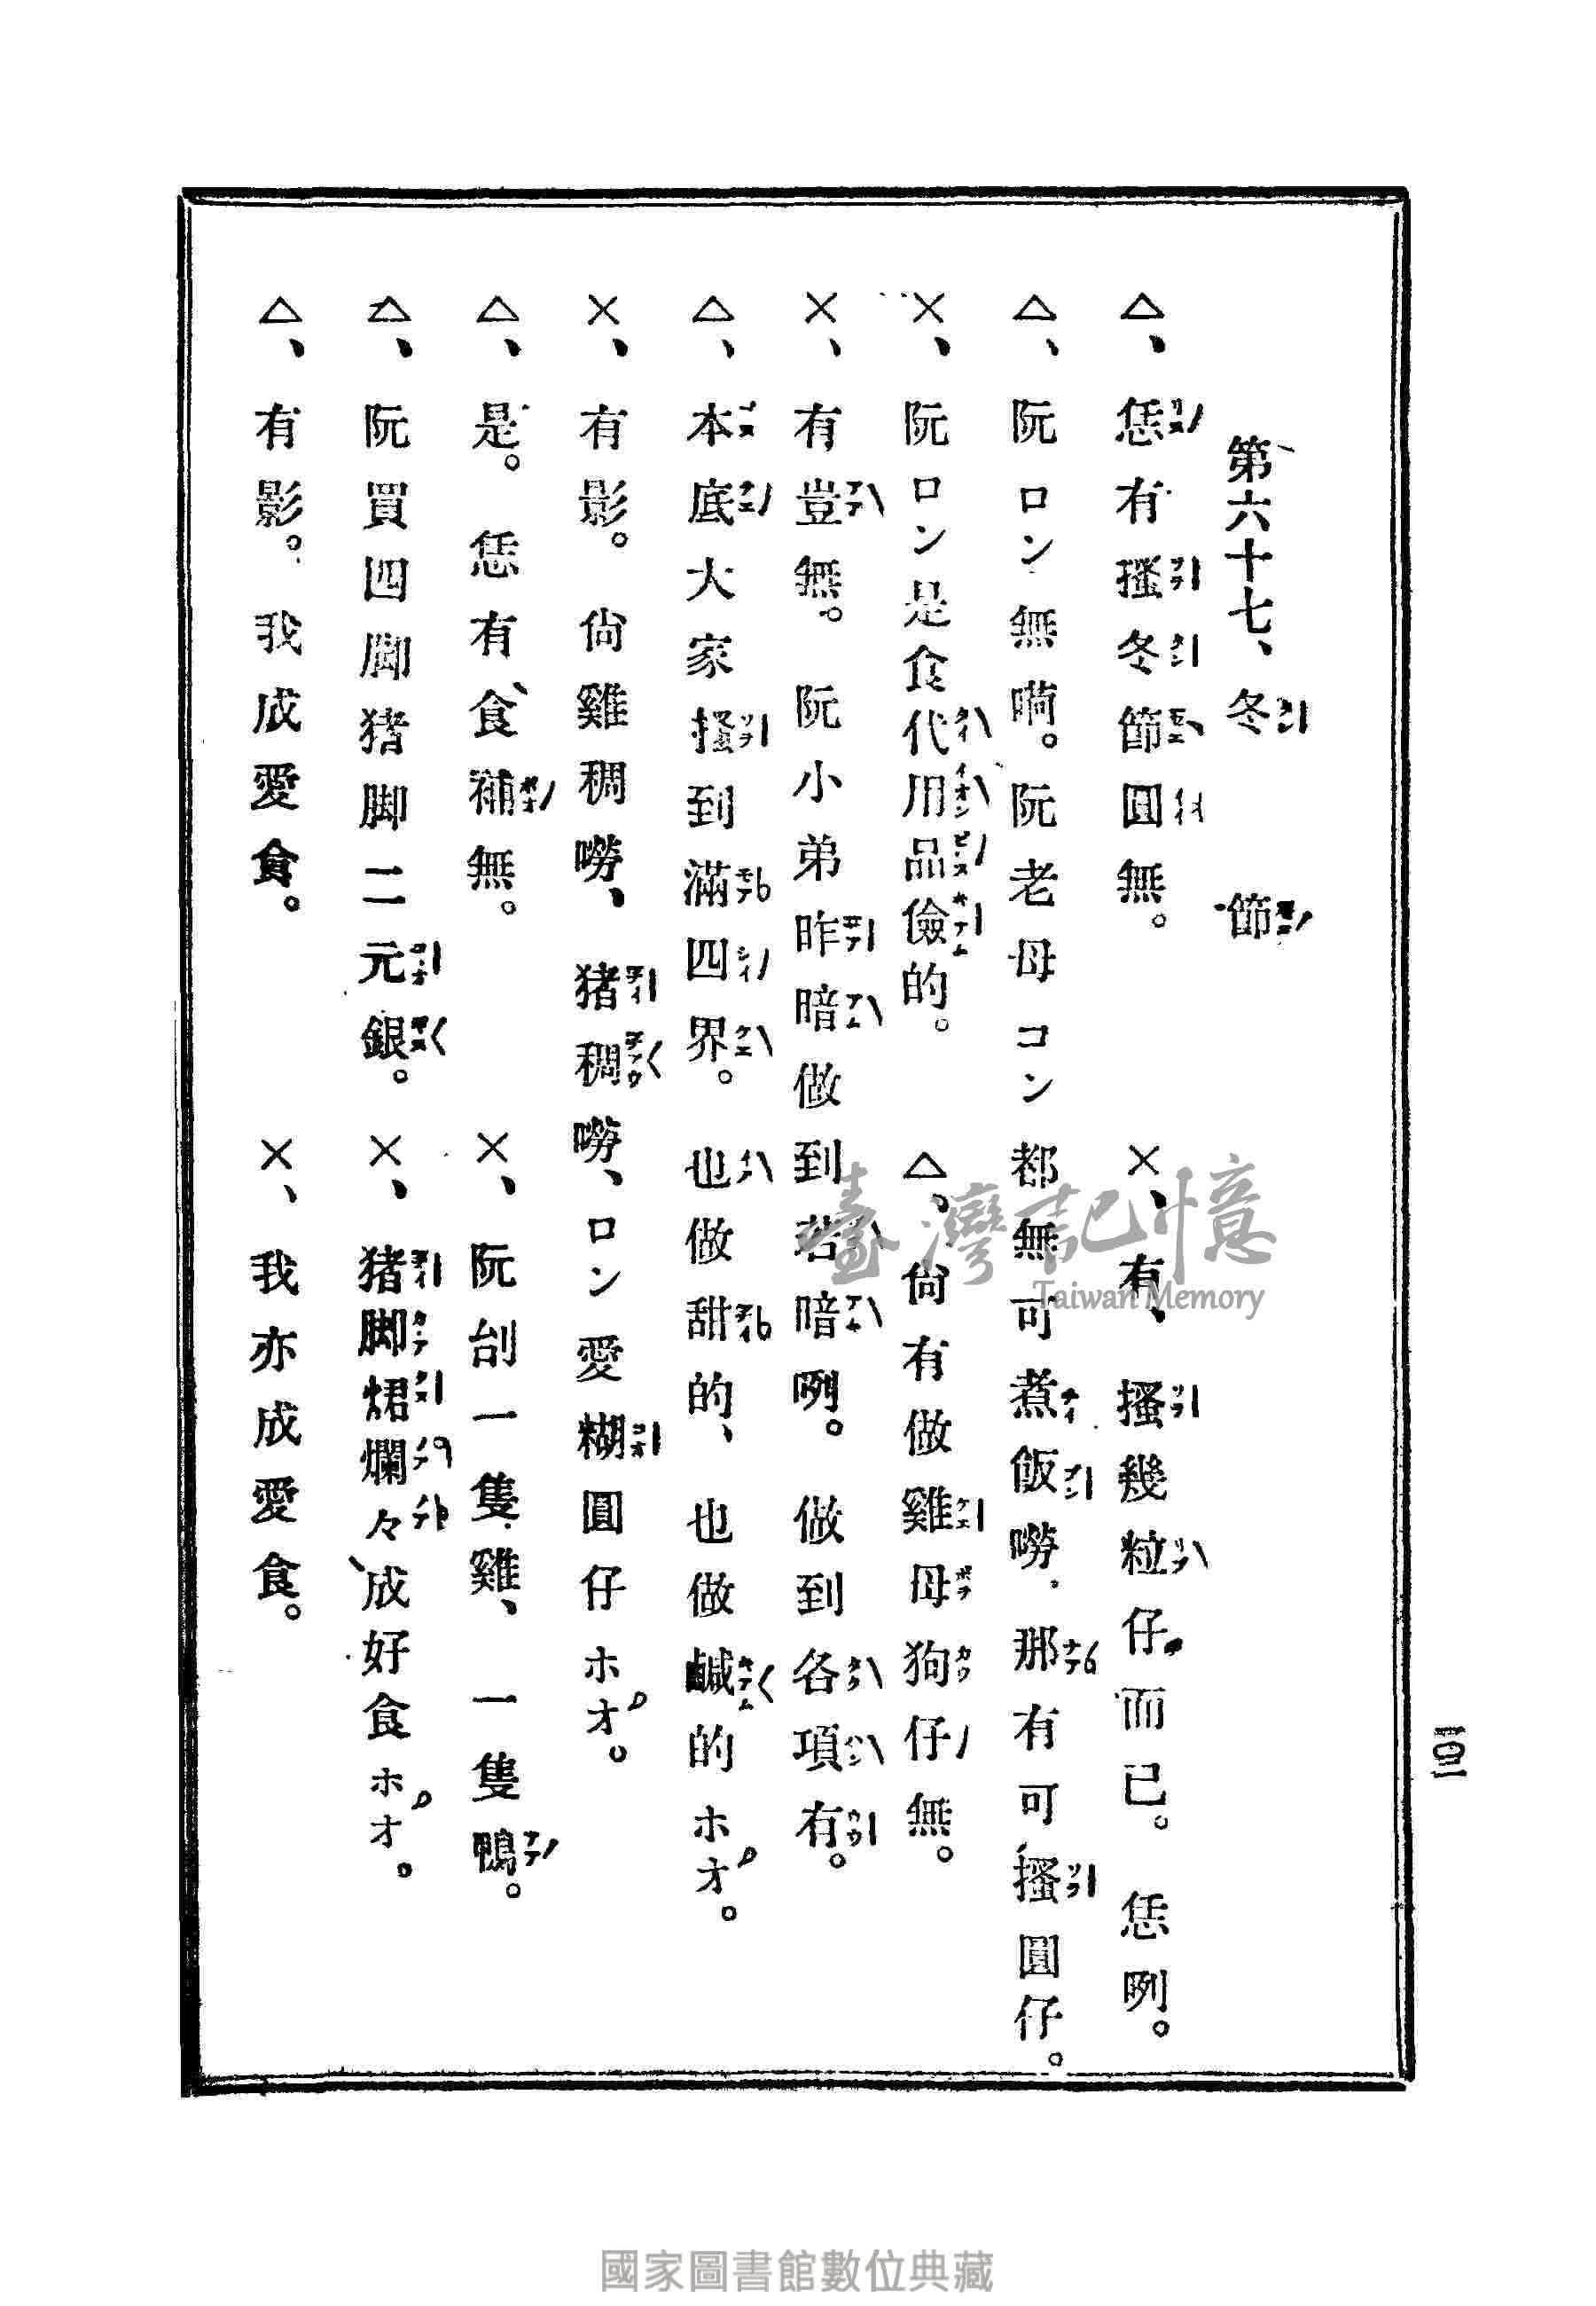 第六十七、冬節
△、恁有搔冬節圓無。 ×、有、搔幾粒仔而已。恁咧。
△、阮ロン無嗬。阮老母コン都無可煮飯嘮、那有可搔圓仔。
×、阮ロン是食代用品儉的。 △、尙有做雞母狗仔無。
×、有豈無。阮小弟昨暗做到若暗咧。做到各項有。
△、本底大家搔到滿四界。也做甜的、也做鹹的ホオ。
×、有影。尙雞稠嘮、猪稠嘮、ロン愛糊圓仔ホオ。
△、是。恁有食補無。 ×、阮刣一隻雞、一隻鴨。
△、阮買四脚猪脚二元銀。 ×、猪脚焄爛々成好食ホオ。
△、有影。我成愛食。 ×、我亦成愛食。
一〇二
臺灣記憶
Taiwan Memory
國家圖書館數位典藏